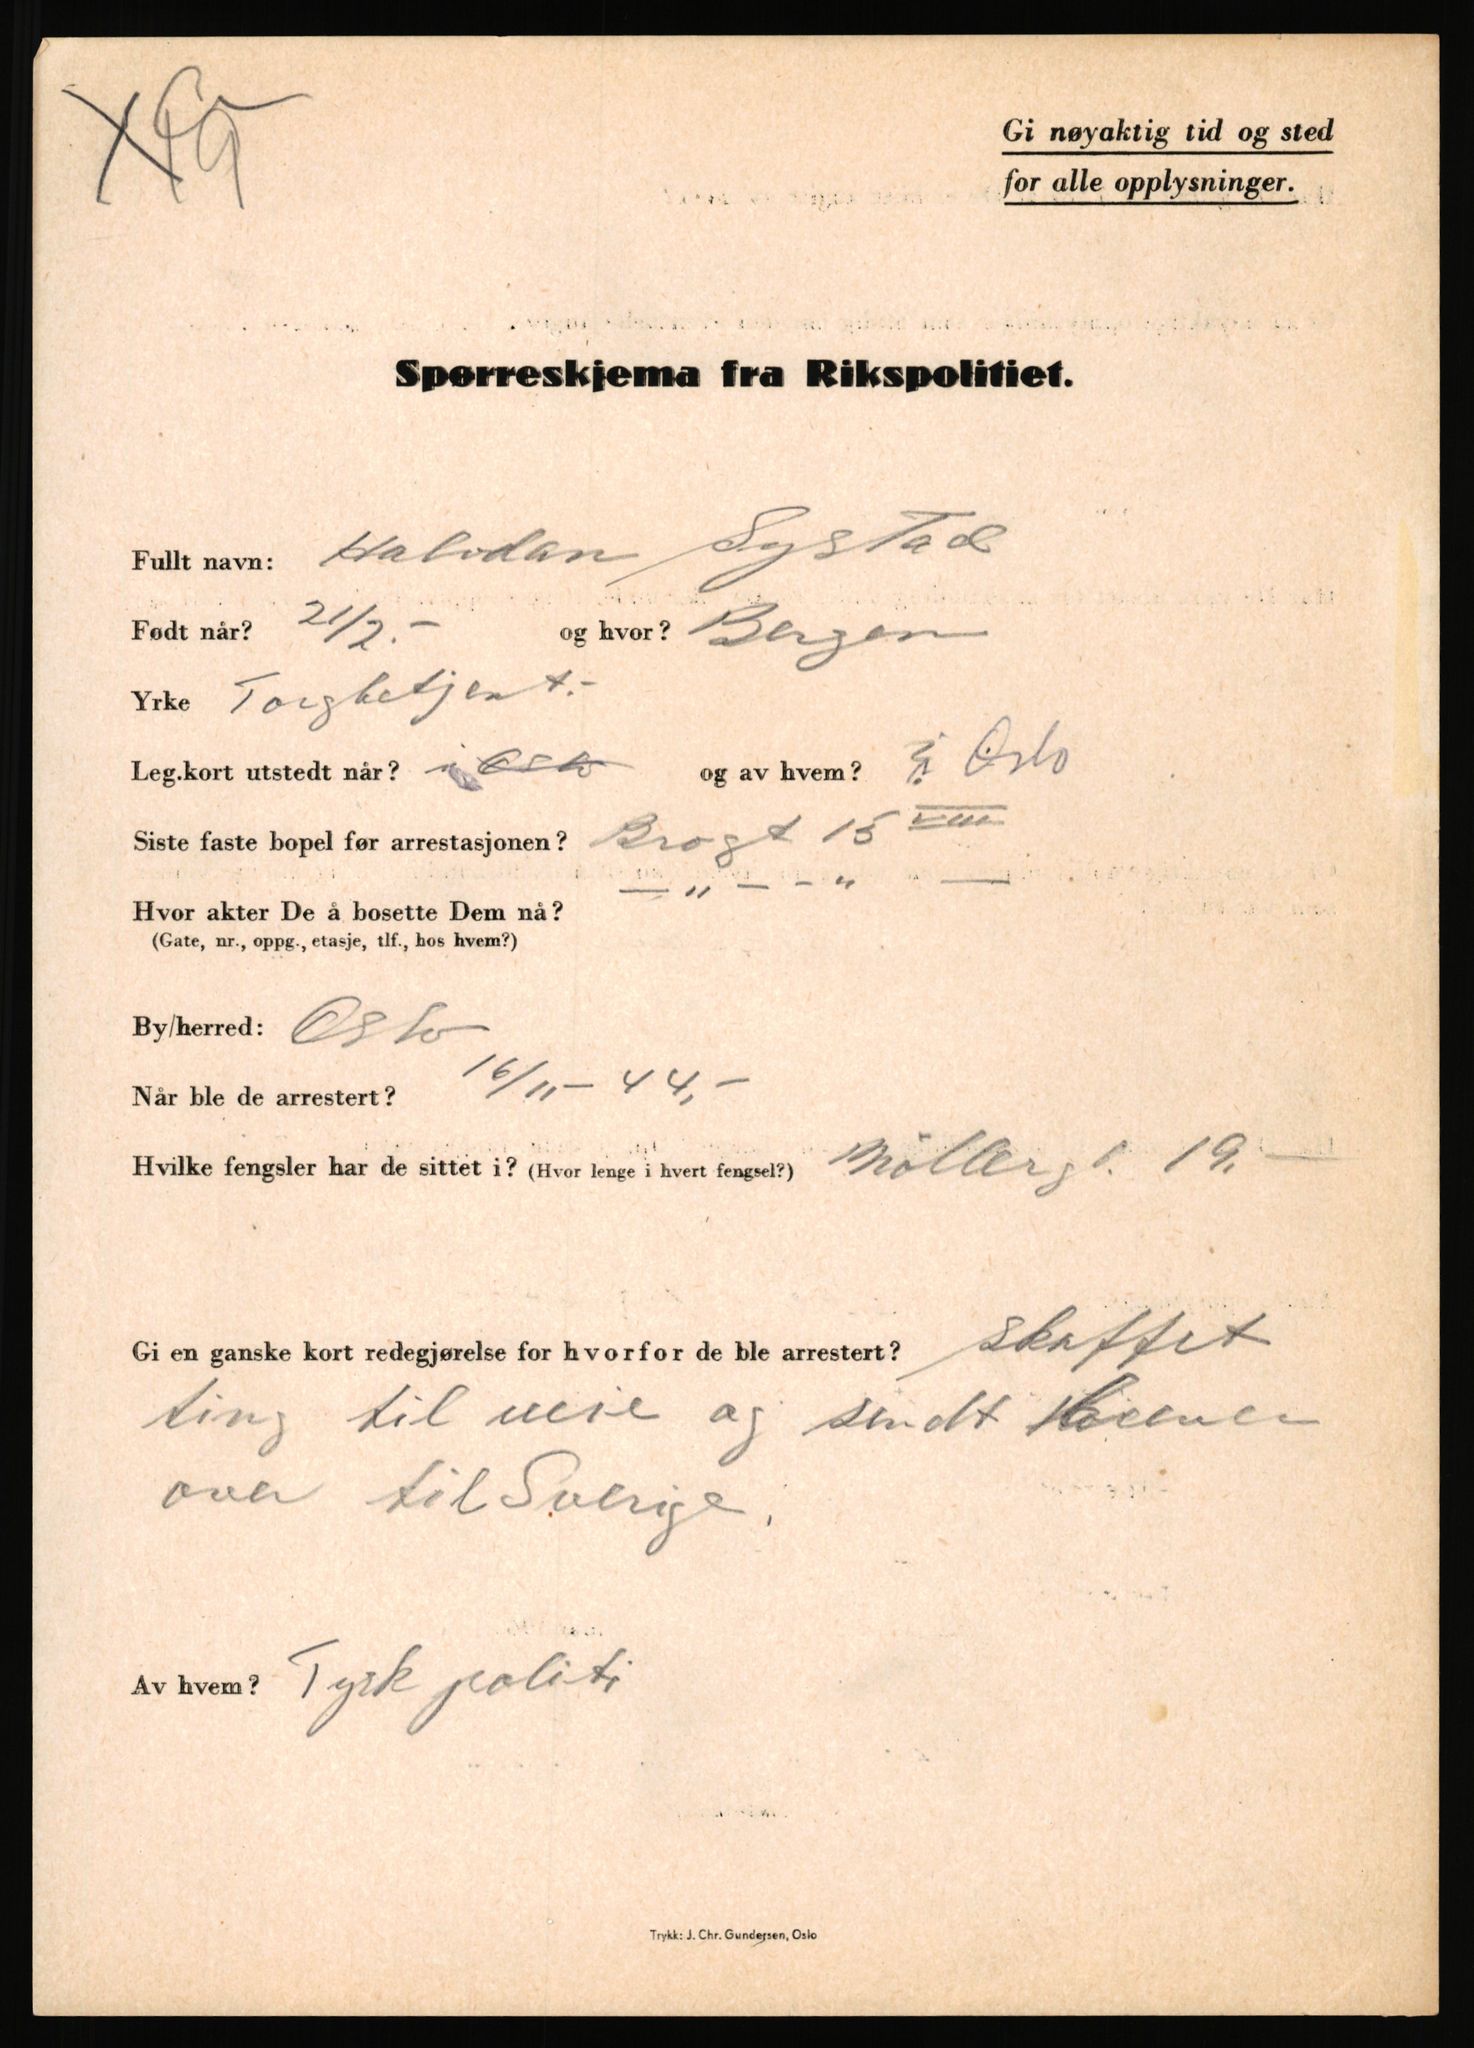 Gi nøyaktig tid og sted
for alle opplysninger.
Spørreskjema fra Rikspolitiet.
Fullt navn: Halvdan Systad
Født når? 21/2.- og hvor? Bergen
Yrke Torgbetjent.-
Leg.kort utstedt når? i Oslo og av hvem? i Oslo
Siste faste bopel før arrestasjonen? Brogt 15 VIII
Hvor akter De å bosette Dem nå? — " — - "  —
(Gate, nr., oppg., etasje, tlf., hos hvem?)
By/herred: Oslo
Når ble de arrestert? 16/11.- 44,-
Hvilke fengsler har de sittet i? (Hvor lenge i hvert fengsel?) Møllergt. 19.-
Gi en ganske kort redegjørelse for hvorfor de ble arrestert? skaffet
ting til og sendt
over til Sverige.
Av hvem? Tysk politi
Trykk: J. Chr. Gundersen, Oslo